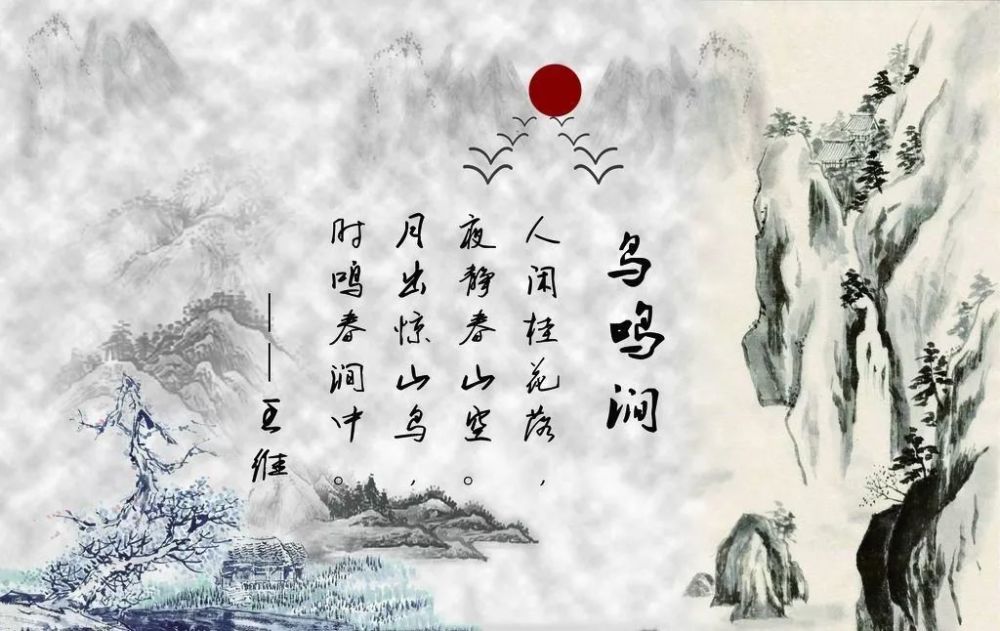 鸟鸣涧
人闲桂花落,
夜静春山空。
月出惊山鸟,
时鸣春涧中。
——王维